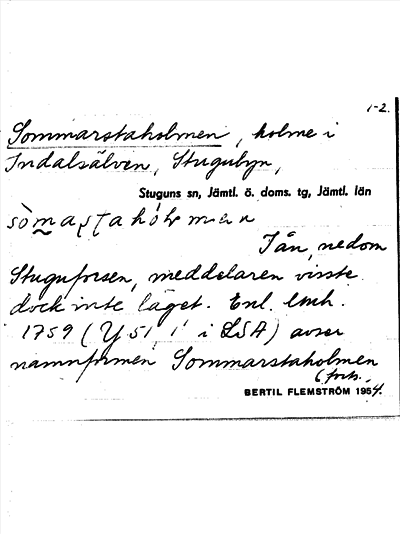 1-2.
Sommarstaholmen, holme i
Indalsälven, Stugubyn,
Stuguns sn, Jämtl. ö. doms. tg, Jämtl. län
I ån, nedom
Stuguforsen, meddelaren visste
dock inte läget. Enl. lmh.
1759 (Y51 1' i LSA) avser
namnformen Sommarstaholmen
(forts.
BERTIL FLEMSTRÖM 1954.